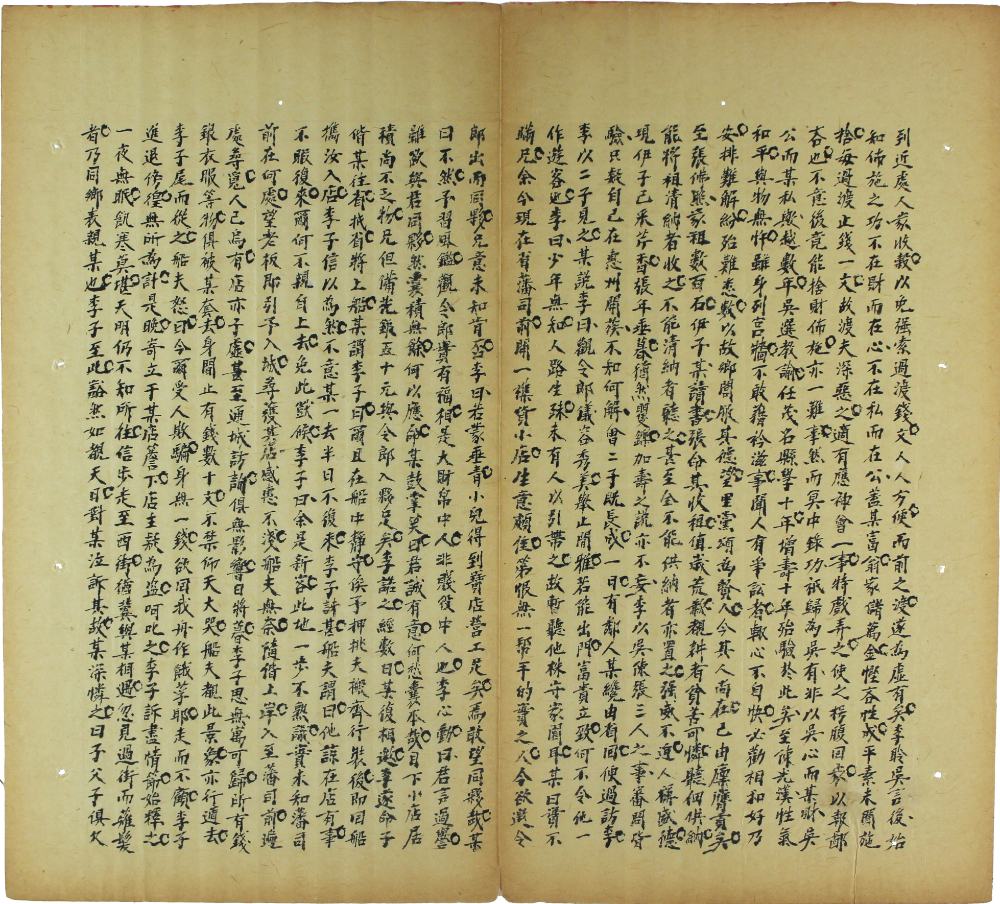 列近處人家收穀以免强索過渡錢文人人方便而前之渡遂為虛有矣李聆吳言後始
知佈施之功不在財而在心不在私而在公蓋某富翁家儲萬金慳吝性成平素未聞施
捨每過渡止錢一文故渡夫深惡之適有應神會一事特戲弄之使之枵腹回家以報鄙
吝也不意後竟能捨財佈施亦一難事然而冥中錄功祇歸為吳有非以吳心而某吥吳
公而某私歟越數年吳選教諭任茂名縣學十年增壽十年殆驗於此矣至陳光漢性氣
和平與物無忤雖身列宮牆不敢藉衿滋事聞人有爭訟者輒心不自快必勸相和好乃
安排難解紛殆難悉數以故鄉閭服其德望里黨頌為善人今其人尚在已由廩膺貢矣
至張佛賬家租數百石伊子某請書張命其收租值歲荒穀親耕者貧苦可憐聽佃供納
能將租清納者收之不能清納者聽之甚至全不能供納者亦置之强威不逆人稱盛德
現伊子已采芹香張年垂暮德然矍鑠加壽之說亦不妄李以吳陳張三人之事審問皆
驗只數自己在惠州開渡不知何解曾二子既長成一日有鄰人某纔由省回便過訪李
李以二子見之某說李曰觀令郎儀容秀美舉止閒雅若能出門富貴立致何不令他一
作遊客也李曰少年無知人路生疎未有人以引帶之故暫聽他株守家園耳某曰實不
瞞兄余今現在省藩司前開一襍貨小店生意頗佳第恨無一幫手的實之人今欲邀令
郎出而同夥兄意未知肯否李曰若蒙垂青小兒得到寶店營工足矣焉敢望同夥哉某
曰不然予習風鑑觀令郎實有福相是大財帛中人非衆役中人也李心動曰君言過譽
雖欲與君同夥然囊積無餘何以應命某鼓掌笑曰君誠有意何愁囊本哉目下小店居
積尚不乏物兄但備光銀五十元與令郎入夥足矣李諾之經數日某復相邀李遂命子
偕某往省找省將上船某謂李子曰爾且在船中靜守俟予押挑夫搬齊行裝後即回船
攜汝入店李子信以為然不意某一去半日不復來李子訝甚船夫謂曰他諒在店有事
不暇復來爾何不親自上去免此獃候李子曰余是新客此地一步不熟識實未知藩司
前在何處望老板即引予入城尋獲其店感恵不淺船夫無奈隨偕上岸入至藩司前遍
處尋覓人已烏有店亦子虛甚至通城訪諭俱無影響日將暮李子思無寓可歸所有錢
銀衣服等物俱被某套去身間止有錢數十文不禁仰天大哭船夫覩此景象亦行遁去
李子尾而從之船夫怒曰今爾受人欺騙身無一錢欲回我舟作餓莩耶走而不顧李子
進退傍徨無所為計是晚寄立于某店簷下店主疑為盜呵叱之李子訴盡情節始釋之
一夜無眠飢寒莫堪天明仍不知所往信步走至西街德冀與某相遇忽見過街而薙髮
者乃同鄉表親某也李子至此豁然如覩天日對某泣訴其故某深憐之曰子父子俱欠